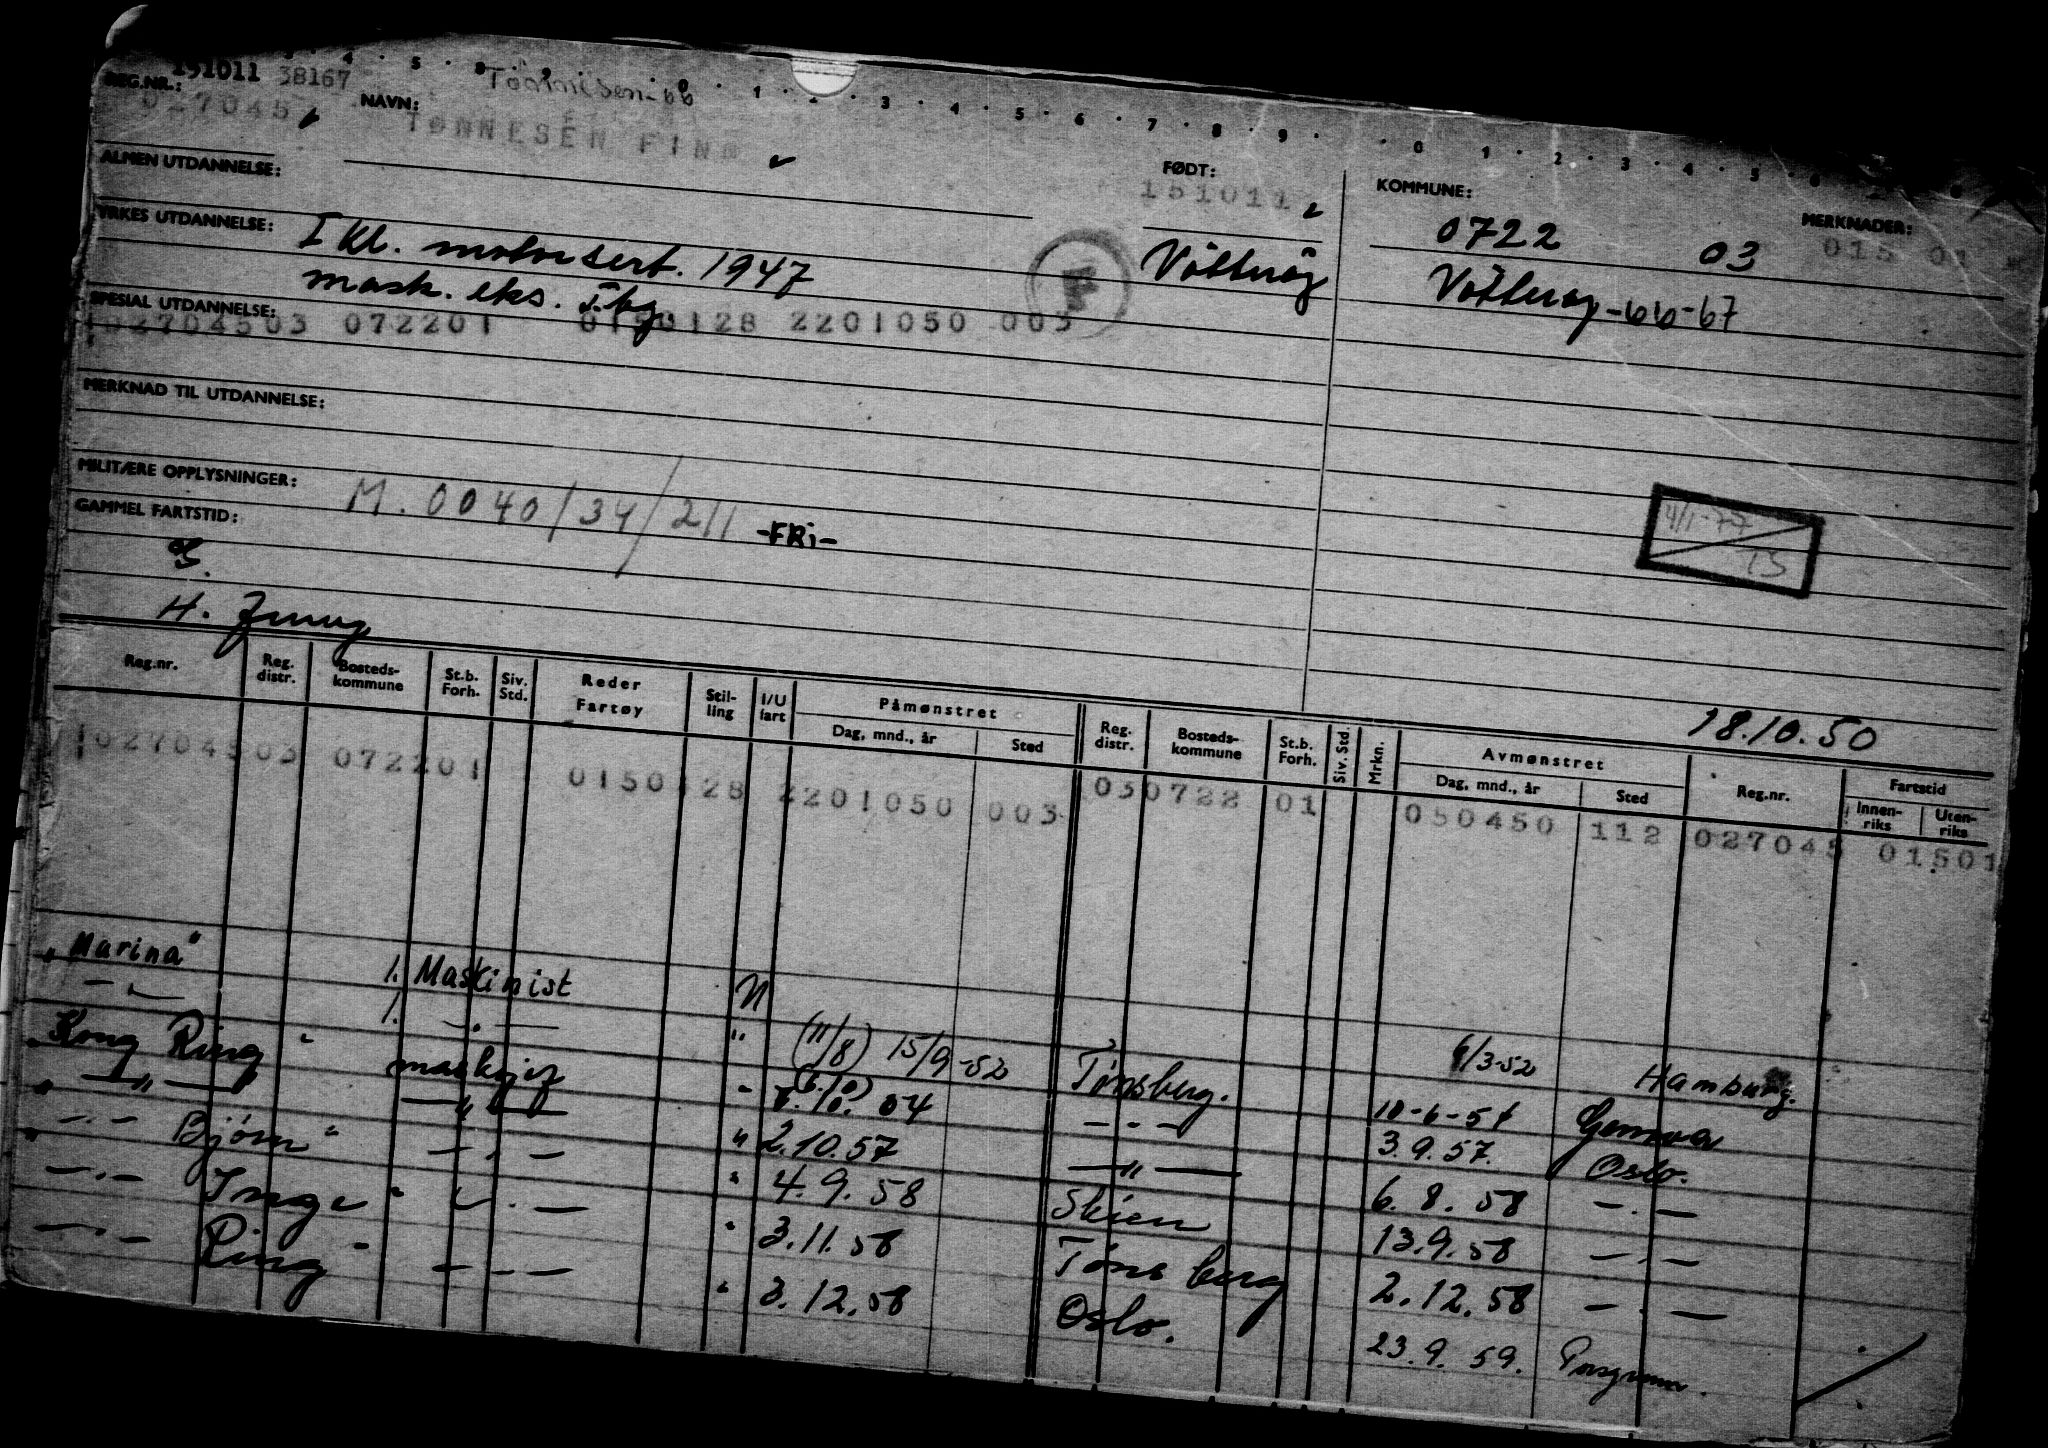 151011 38167 Tönnesen-66
REG.NR.: 027045 NAVN: TØNNESEN FINN
ALMEN UTDANNELSE: FØDT: 151011 KOMMUNE: MERKNADER:
0722 03 015 01
YRKES UTDANNELSE: I Kl. motorsert. 1947 F Nötteröy Nötteröy-66-67
mask. eks. Tbg
SPESIAL UTDANNELSE:
102704503 072201 0150128 2201050 003
MERKNAD TIL UTDANNELSE:
MILITÆRE OPPLYSNINGER: M. 0040/34/211 -FRi-
4/1-77
TS
GAMMEL FARTSTID:
H.
18.10.50
Reg.nr. Reg. distr. Bosteds- kommune St.b. Forh. Siv. Std. Reder Fartøy Stil- ling I/U fart Påmønstret Dag, mnd., år Sted Reg. distr. Bosteds- kommune St.b. Forh. Siv. Std. Mrkn. Avmønstret Dag, mnd., år Sted Reg.nr. Fartstid Innen- riks Uten- riks
102704503 072201 0150128 2201050 003 030722 01 050450 112 027045 01501
„Marina" 1. Maskinist N 6/3-52 Hamburg.
— " — 1. — . — " (11/8) 15/9-52 Tønsberg. 10-6-54 Genova
„Kong Ring" maskinist " 7.10.54 — " — 3.9.57. Oslo.
" — " — — " — " 2.10.57 — " — 6.8.58 — . —
" — . — Bjørn" — . — " 4.9.58 Skien 13.9.58 — . —
— . — Inge" — . — " 3.11.58 Tønsberg 2.12.58 — . —
— . — Ring" — . — " 3.12.58 Oslo. 23.9.59. Porsgrunn.